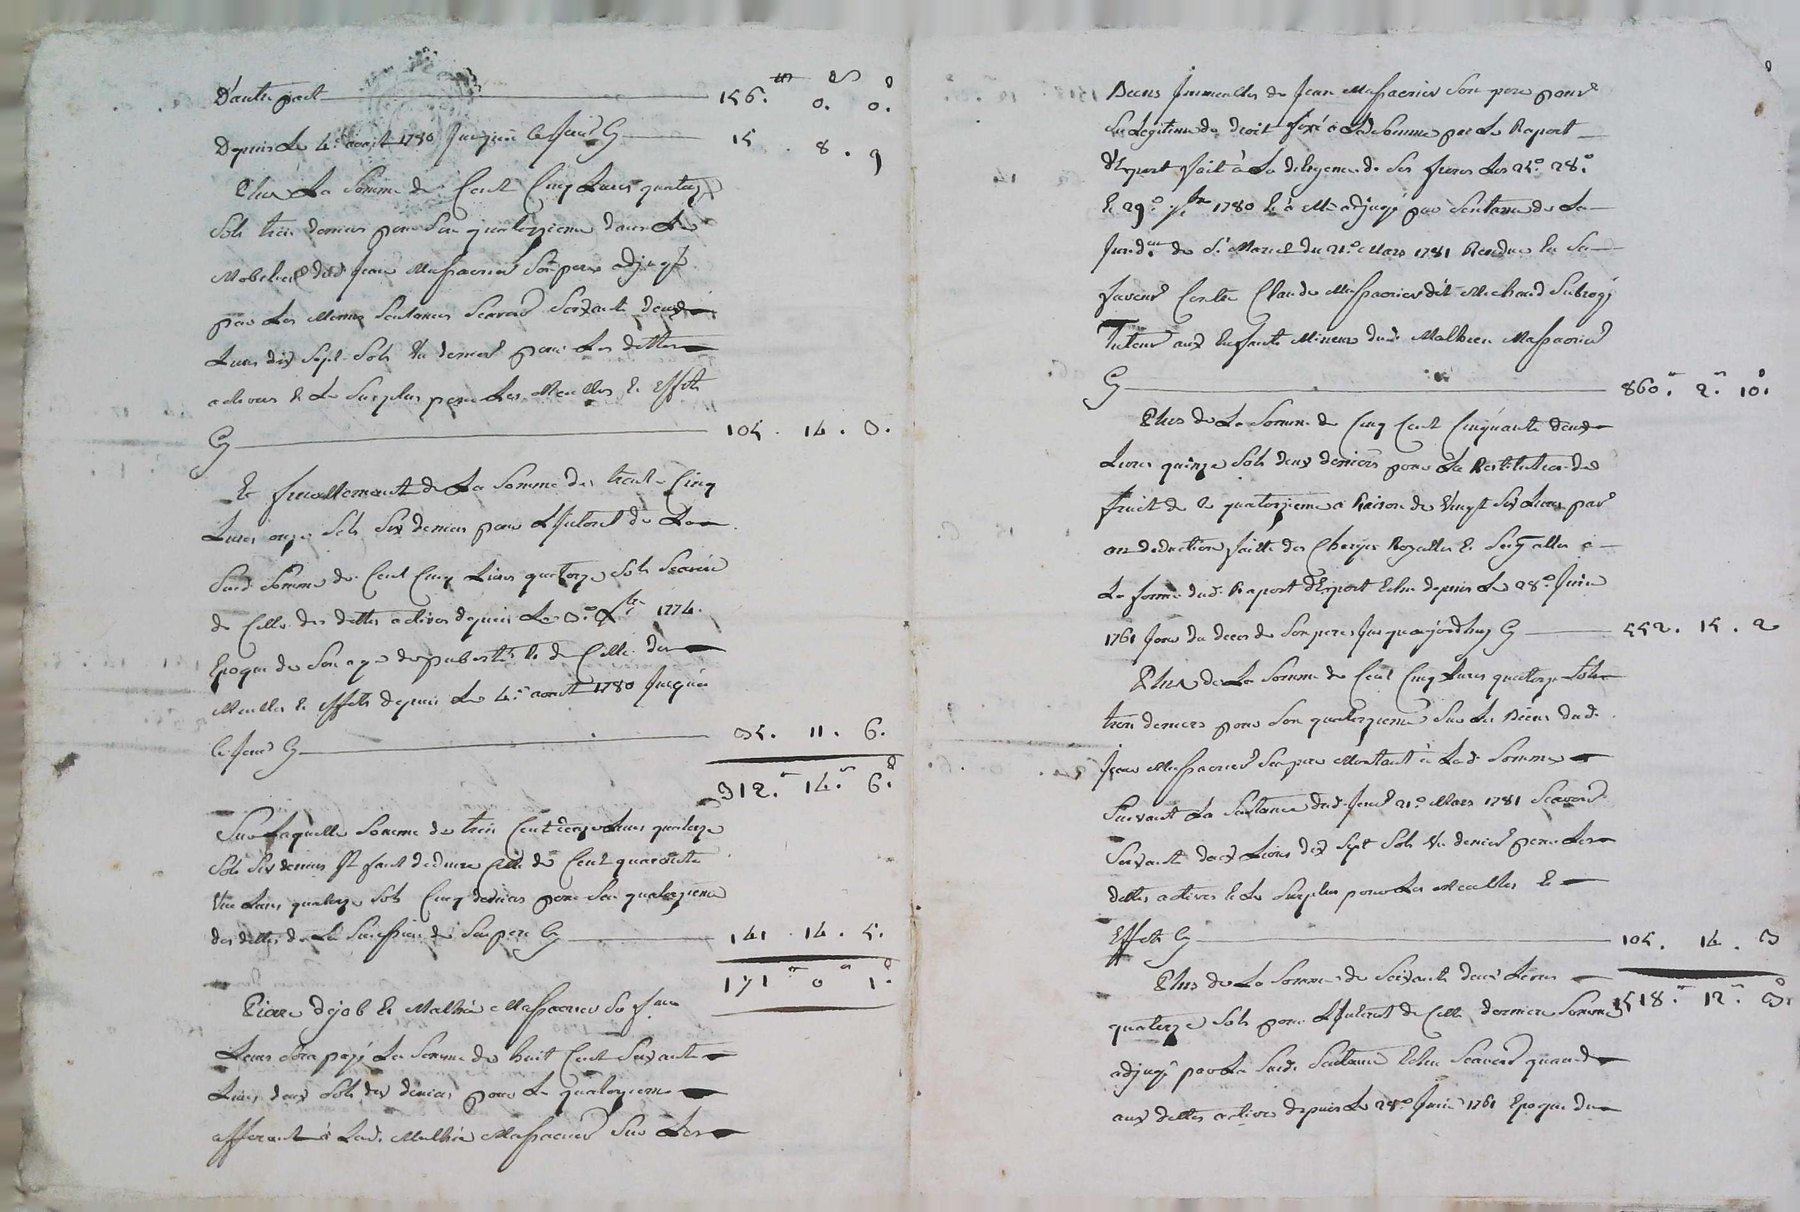 D'autre part 156. 0. 0.
Depuis Le 4e aoust 1780 jusques ce jourd' Cy 15. 8. 9
Plus La somme de Cent Cinq Livres quatorze
sols trois deniers pour son quatorzieme dans Le
Mobelier dud. Jean Massacrier son pere adjugé
par Les memes sentances scavoir soixante deux
Livres dix sept sols un denier pour Les dettes
actives & Le surplus pour Les Meubles & Effets
Cy 105. 14. 3.
& finallement de La somme de trente Cinq
Livres onze sols six deniers pour L'Interet de La
susd. somme de Cent Cinq Livres quatorze sols scavoir
de Celle des dettes actives depuis Le 3e 1774.
Epoque de son age de puberté & de Celle des
Meubles & effets depuis Le 4e aoust 1780 jusques
ce jourd' Cy 35. 11. 6.
312. 14. 6.
Sur Laquelle somme de trois Cent douze Livres quatorze
sols six deniers Il faut deduire Celle de Cent quarante
une Livres quatorze sols Cinq deniers pour son quatorzieme
des dettes de La succession de son pere Cy 141. 14. 5.
171 0 1.
Piere dejob & Mathie Massacrier sa fame
Leur sera payé La somme de huit Cent soixante
Livres deux sols dix deniers pour Le quatorzieme
afferant à Lad. Mathie Massacrier sur Les
Biens Immeubles de Jean Massacrier son pere pour
sa Legitime de droit fixé à Lad. somme par Le Raport
d'Expert fait à La diligence de ses freres Les 25e 28e
& 29e 7bre 1780 & à Elle adjugé par sentance de La
Jurid.on de St Marcel du 21e Mars 1781 Rendue en sa
faveur Contre Claude Massacrier dit Michaud subrogé
Tuteur aux Enfants Mineurs dud. Mathieu Massacrier
Cy 860. 2. 10.
Plus de La somme de Cinq Cent Cinquante deux
Livres quinze sols deux deniers pour La Restitution des
fruit de ce quatorzieme à Raison de Vingt six Livres par
an deduction faitte des Charges Royalles & seig.alles a
La forme dud. Raport d'Expert Echu depuis Le 28e Juin
1761 jour du deces de son pere jusqu'aujourdhuy Cy 552. 15. 2
Plus de La somme de Cent Cinq Livres quatorze sols
trois deniers pour son quatorzieme sur Les Biens dud.
Jean Massacrier son pere Montant à Lad. somme
suivant La sentance dud. jour 21e Mars 1781 scavoir
soixante deux Livres dix sept sols un denier pour Les
dettes actives & Le surplus pour Les Meubles &
Effets Cy 105. 14. 3
1518. 12. 3.
Plus de La somme de soixante deux Livres
quatorze sols pour L'Interet de Celle derniere somme
adjugé par La susd. sentance Echu scavoir quand
aux dettes actives depuis Le 28e Juin 1761 Epoque du